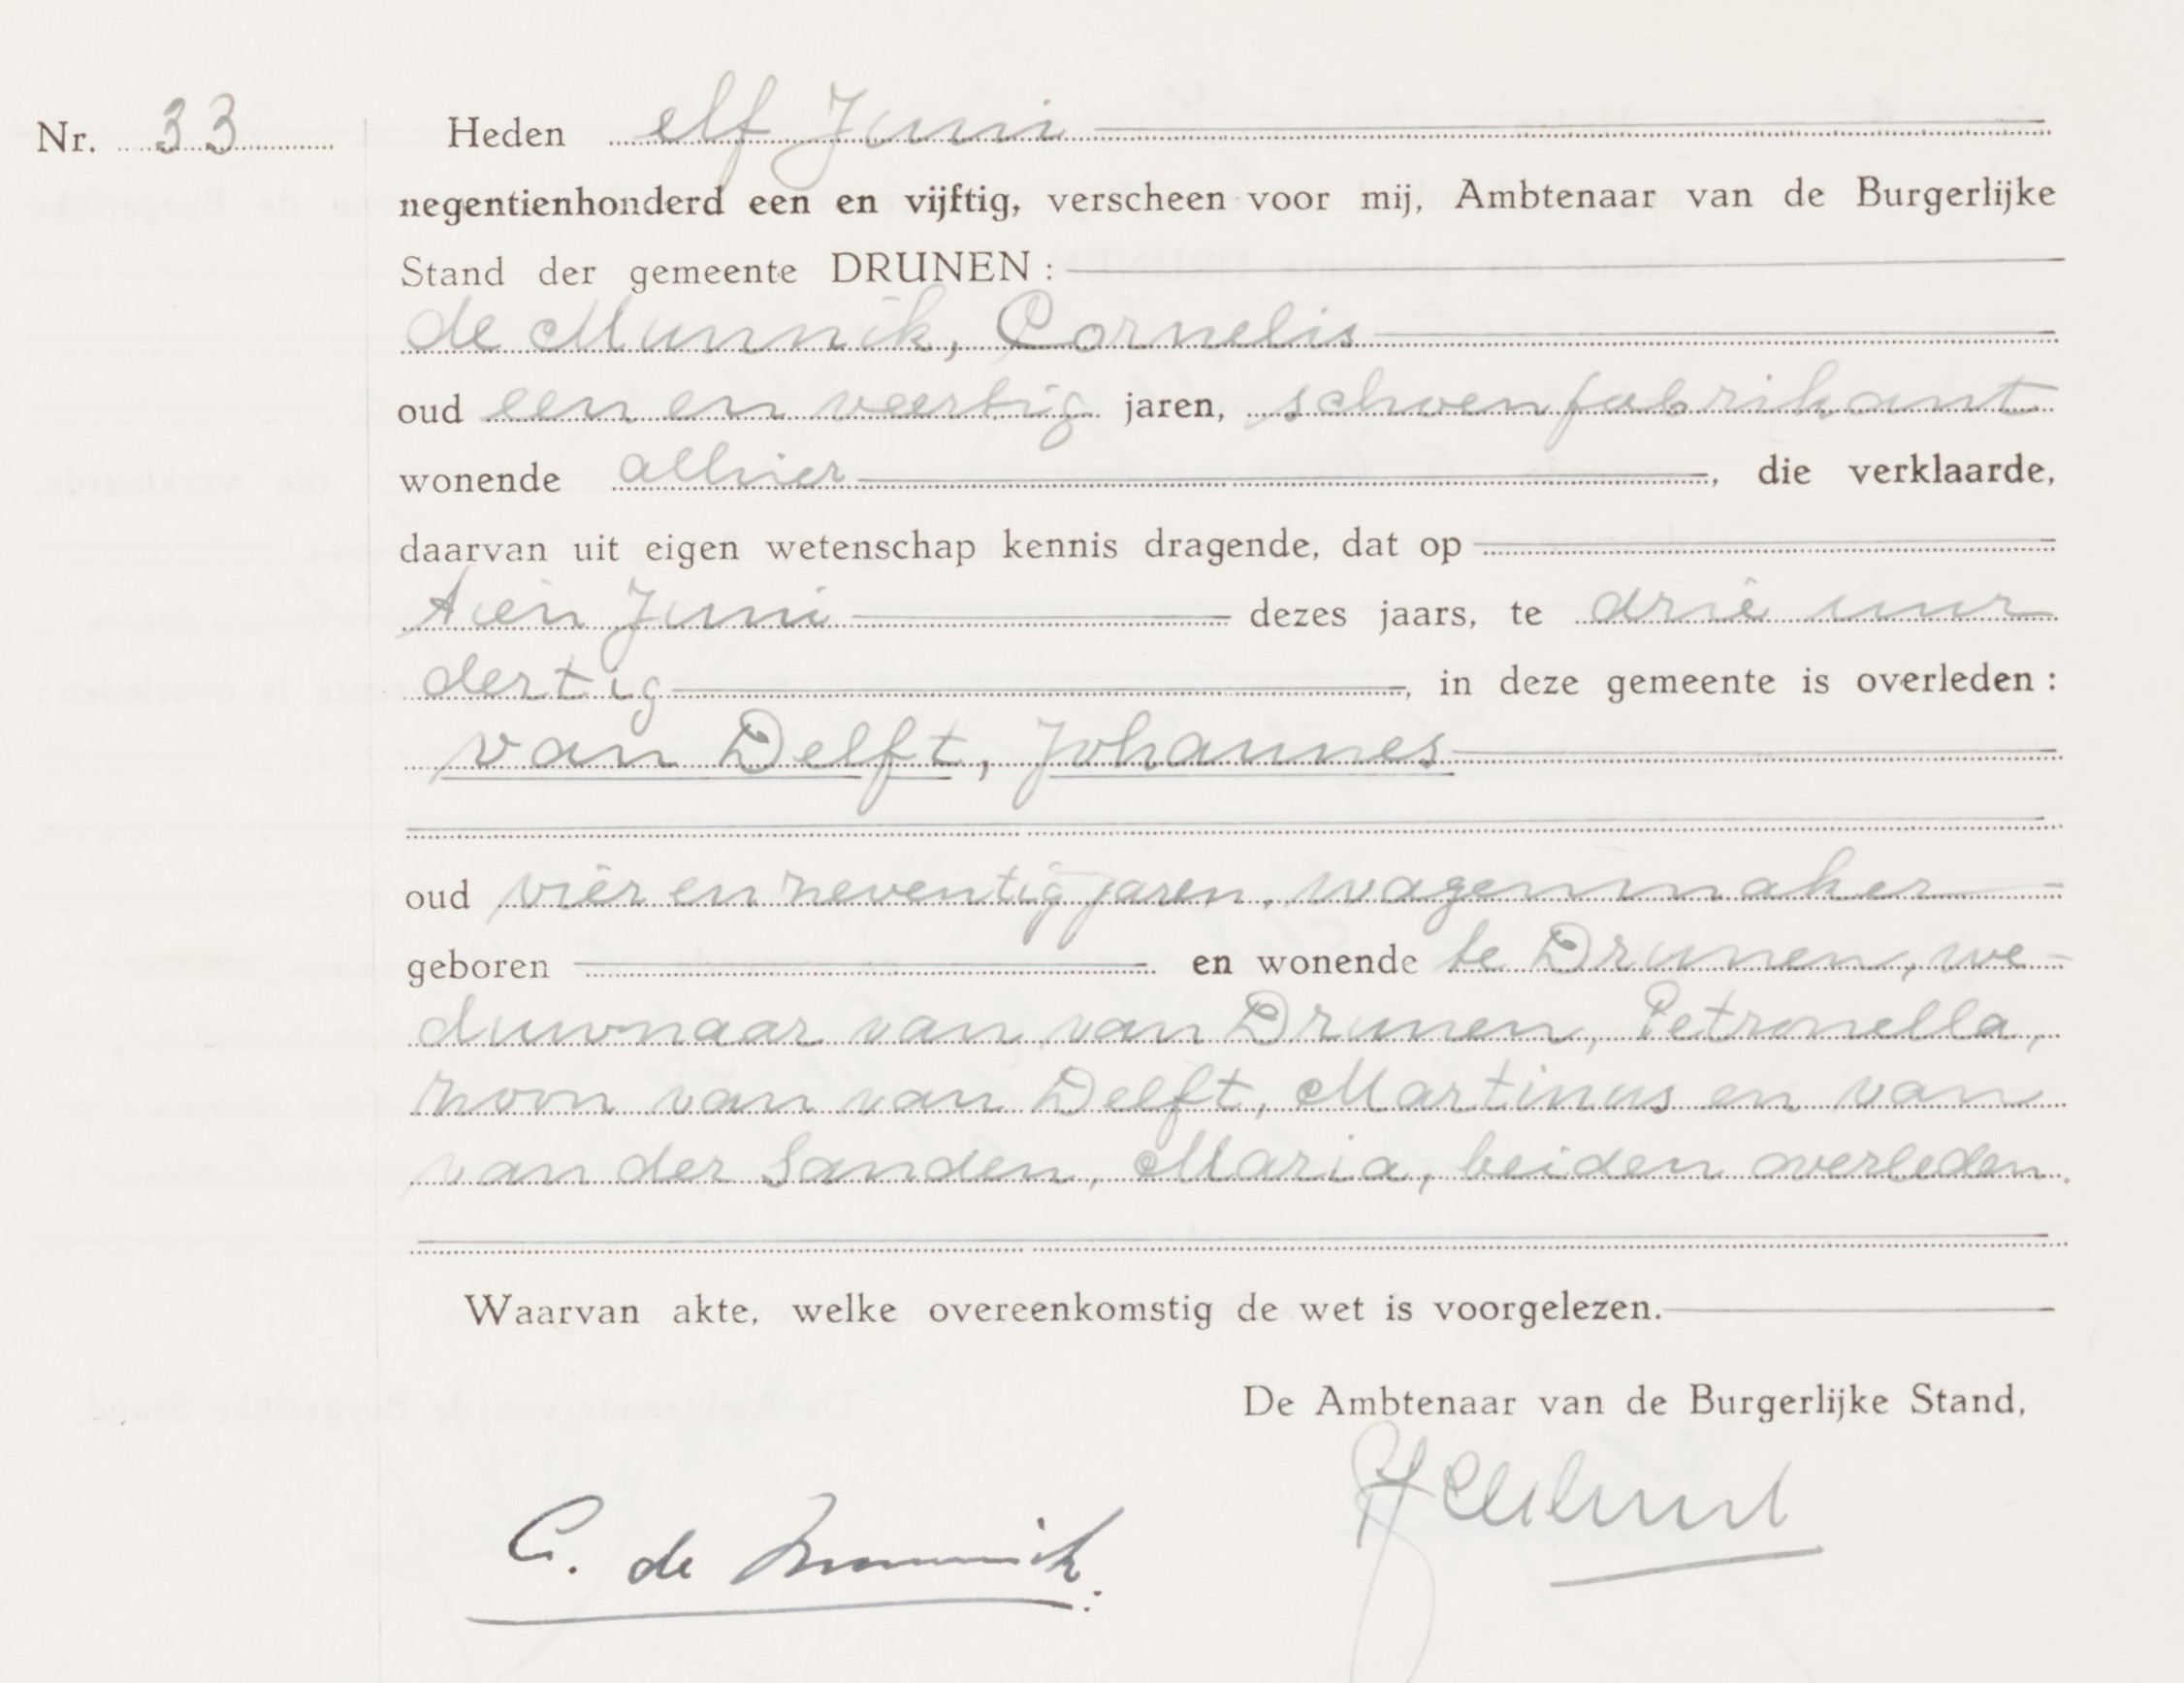 Nr. 33
Heden elf Juni
negentienhonderd een en vijftig, verscheen voor mij, Ambtenaar van de Burgerlijke
Stand der gemeente DRUNEN :
de Munnik, Cornelis
oud een en veertig jaren, schoenfabrikant
wonende alhier, die verklaarde,
daarvan uit eigen wetenschap kennis dragende, dat op
tien Juni dezes jaars, te drie uur
dertig, in deze gemeente is overleden :
van Delft, Johannes
oud vier en zeventig jaren, wagenmaker
geboren en wonende te Drunen, we-
duwnaar van van Drunen, Petronella,
zoon van van Delft, Martinus en van
van der Sanden, Maria, beiden overleden.
Waarvan akte, welke overeenkomstig de wet is voorgelezen.
De Ambtenaar van de Burgerlijke Stand,
C. de Munnik.